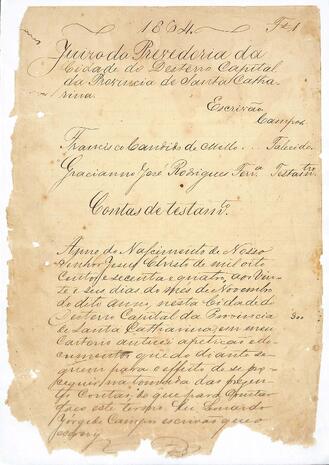 1864. Fl 1
Juizo da Provedoria da
Cidade do Desterro Capital
da Provincia de Santa Catha
rina.
Escrivão
Campos
Francisco Candido de Mello... Falecido
Gracianno José Rodrigues Ferrª Testamtro
Contas de testamto.
Anno do Nascimento de Nosso
Senhor Jesus Christo de mil oito
centos e secenta e quatro, aos vin
te e seis dias do mes de Novembro
do dito anno, nesta Cidade do
Desterro Capital da Provincia
de Santa Catharina, em meu
Cartorio autuei a petição e do
cumentos que do diante se
guem para o effeito de se pro
na tomada das
Contas; do que para
faço este termo. Eu Leonardo
Jorge de Campos escrivão que o